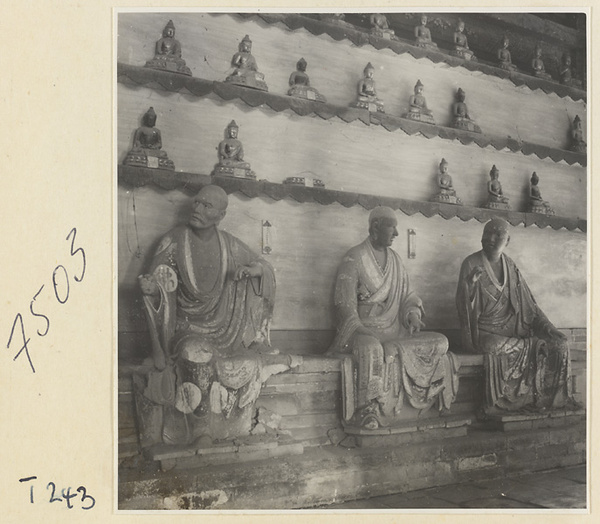 7503
T243